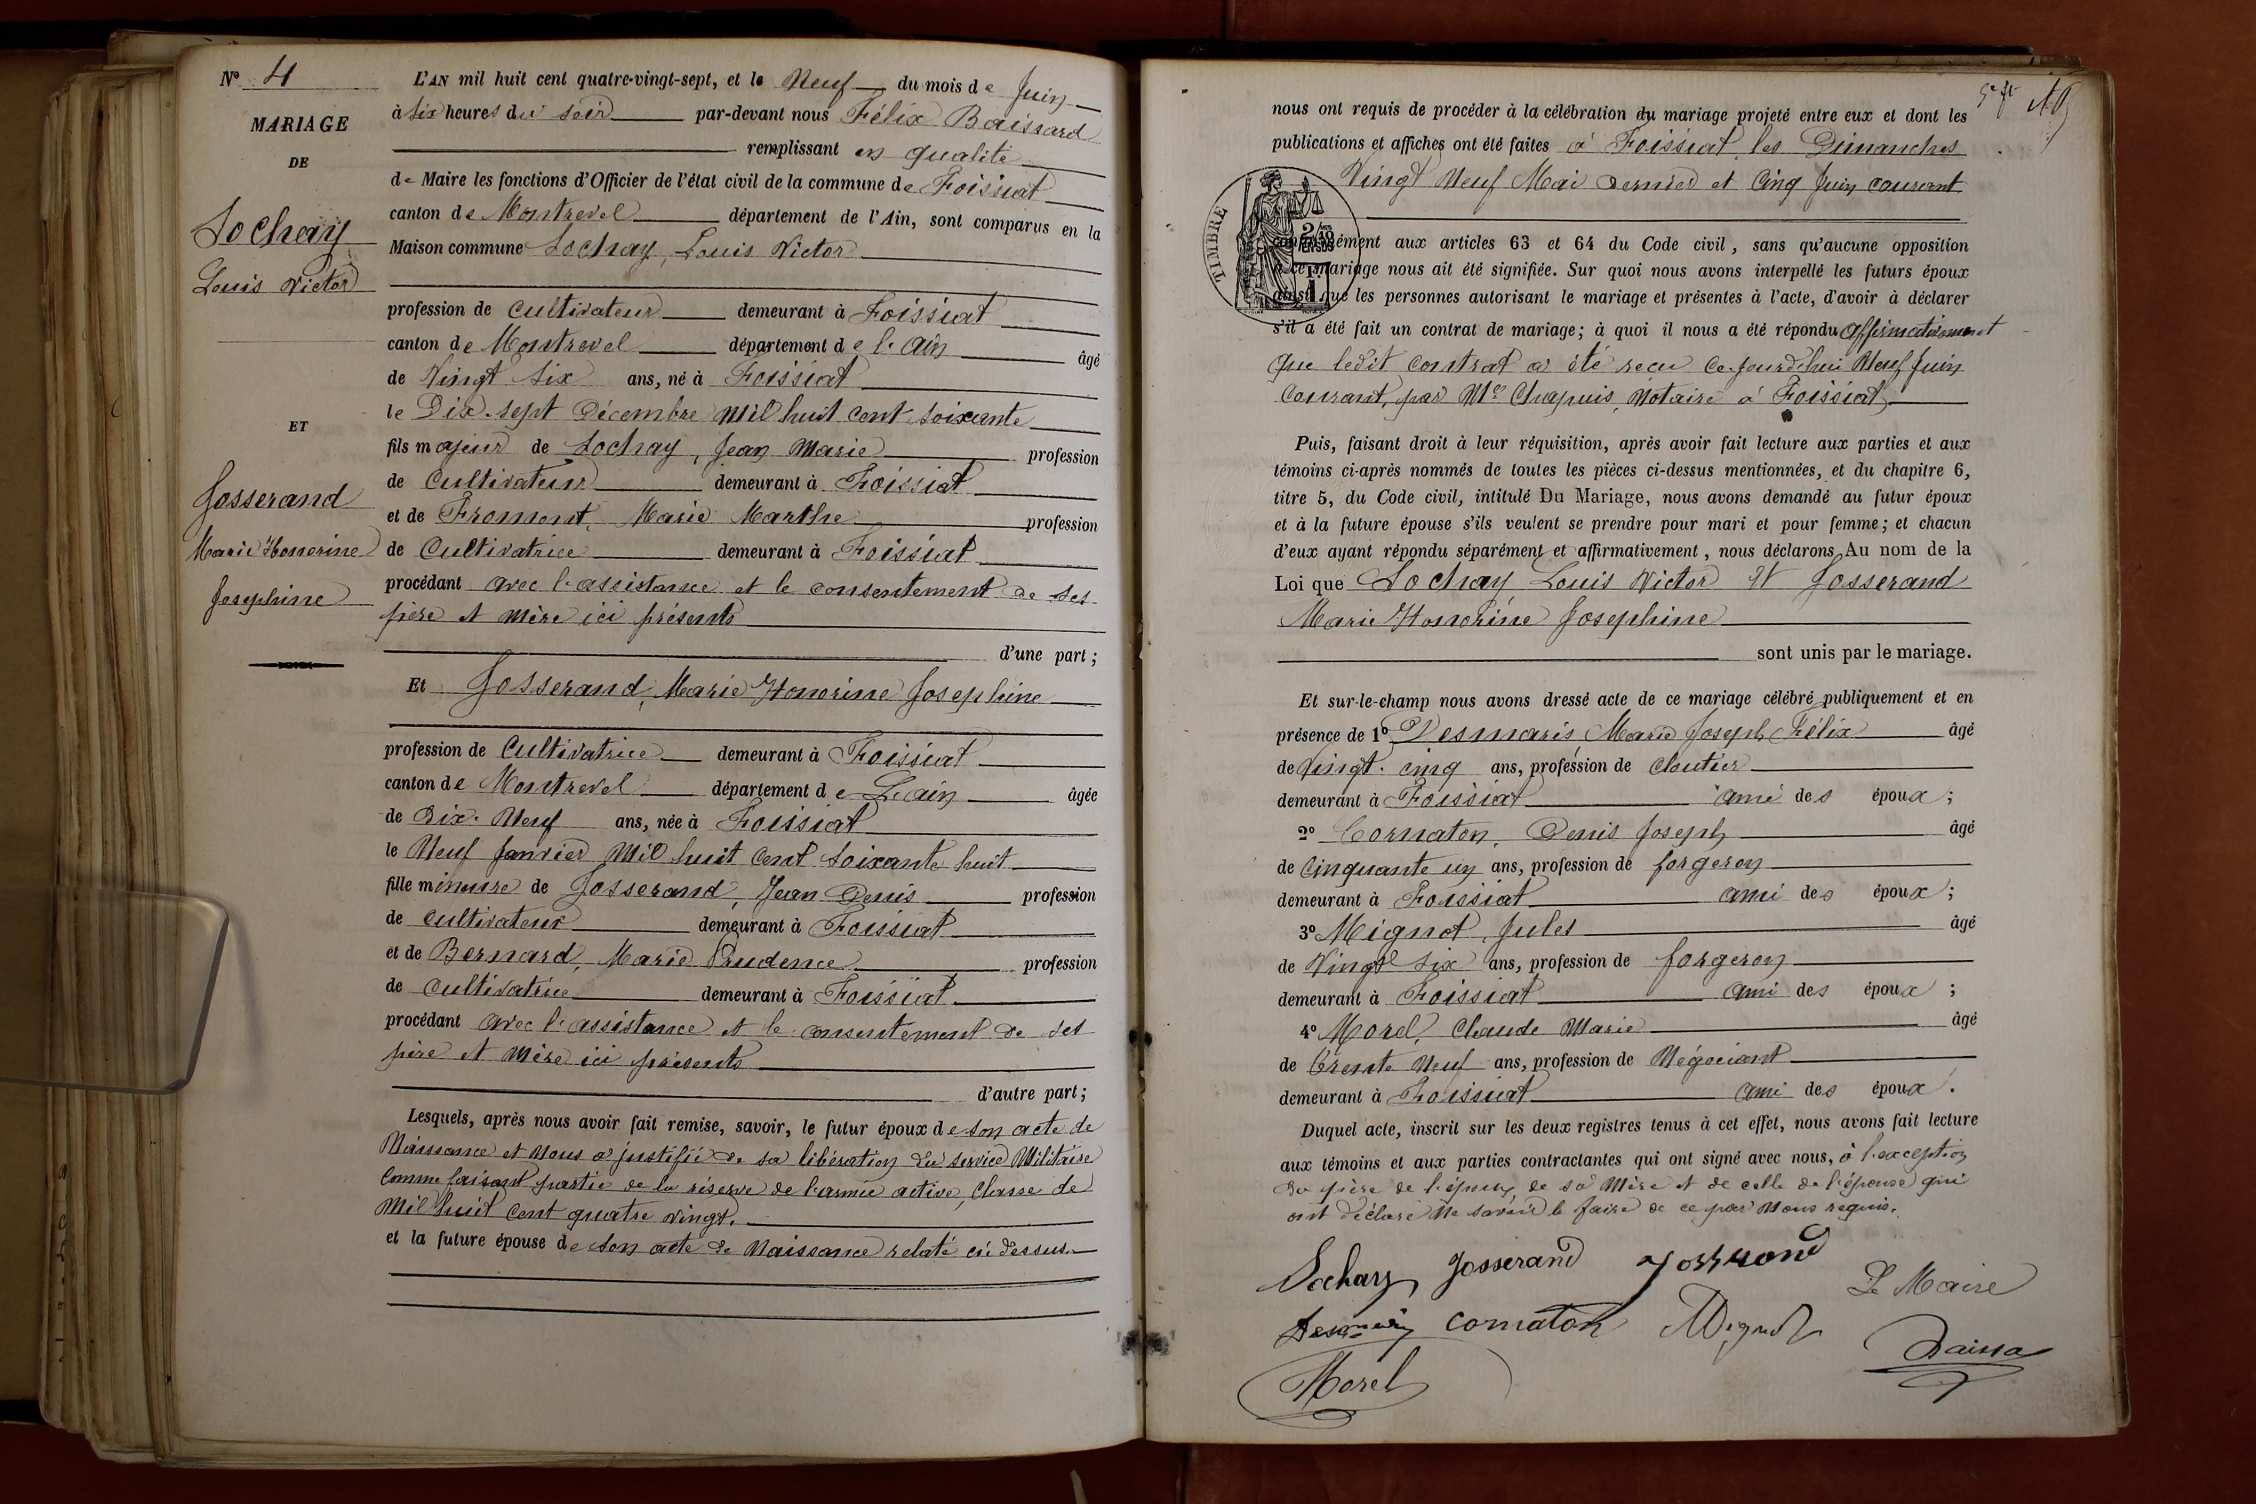 N° 4
MARIAGE
DE
Sochay
Louis Victor
ET
Josserand
Marie Honorine
Josephine
L'AN mil huit cent quatre-vingt-sept, et le Neuf du mois de Juin
à Six heures du soir par-devant nous Félix Baissard
remplissant en qualité
de Maire les fonctions d'Officier de l'état civil de la commune de Foissiat
canton de Montrevel département de l'Ain, sont comparus en la
Maison commune Sochay, Louis Victor
profession de Cultivateur demeurant à Foissiat
canton de Montrevel département de l'Ain âgé
de Vingt Six ans, né à Foissiat
le Dix-sept Décembre Mil huit cent soixante
fils majeur de Sochay, Jean Marie profession
de Cultivateur demeurant à Foissiat
et de Fromont, Marie Marthe profession
de Cultivatrice demeurant à Foissiat
procédant avec l'assistance et le consentement de ses
père et mère ici présents
d'une part;
Et Josserand, Marie Honorine Josephine
profession de Cultivatrice demeurant à Foissiat
canton de Montrevel département de L'ain âgée
de Dix-Neuf ans, née à Foissiat
le Neuf Janvier Mil huit Cent soixante huit
fille mineure de Josserand, Jean Denis profession
de cultivateur demeurant à Foissiat
et de Bernard, Marie Prudence profession
de cultivatrice demeurant à Foissiat
procédant avec l'assistance et le consentement de ses
père et mère ici présents
d'autre part;
Lesquels, après nous avoir fait remise, savoir, le futur époux de son acte de
Naissance et Nous a justifié de sa libération du service Militaire
Comme faisant partie de la réserve de l'armée active, Classe de
Mil huit Cent quatre vingt.
et la future épouse de son acte de Naissance relaté ci-dessus.
nous ont requis de procéder à la célébration du mariage projeté entre eux et dont les
publications et affiches ont été faites à Foissiat les Dimanches
Vingt Neuf Mai dernier et Cinq Juin courant
TIMBRE
conformément aux articles 63 et 64 du Code civil, sans qu'aucune opposition
à ce mariage nous ait été signifiée. Sur quoi nous avons interpellé les futurs époux
ainsi que les personnes autorisant le mariage et présentes à l'acte, d'avoir à déclarer
s'il a été fait un contrat de mariage; à quoi il nous a été répondu affirmativement
que ledit contrat a été reçu ce jourd'hui Neuf Juin
Courant, par Me Chapuis, Notaire à Foissiat
Puis, faisant droit à leur réquisition, après avoir fait lecture aux parties et aux
témoins ci-après nommés de toutes les pièces ci-dessus mentionnées, et du chapitre 6,
titre 5, du Code civil, intitulé Du Mariage, nous avons demandé au futur époux
et à la future épouse s'ils veulent se prendre pour mari et pour femme; et chacun
d'eux ayant répondu séparément et affirmativement, nous déclarons Au nom de la
Loi que Sochay Louis Victor Et Josserand
Marie Honorine Josephine
sont unis par le mariage.
Et sur-le-champ nous avons dressé acte de ce mariage célébré publiquement et en
présence de 1° Desmaris Marie Joseph Félix âgé
de Vingt-cinq ans, profession de cloutier
demeurant à Foissiat ami des époux;
2° Cornaton, Denis Joseph âgé
de Cinquante un ans, profession de forgeron
demeurant à Foissiat ami des époux;
3° Mignot, Jules âgé
de Vingt Six ans, profession de forgeron
demeurant à Foissiat ami des époux;
4° Morel, Claude Marie âgé
de Trente Neuf ans, profession de Négociant
demeurant à Foissiat ami des époux.
Duquel acte, inscrit sur les deux registres tenus à cet effet, nous avons fait lecture
aux témoins et aux parties contractantes qui ont signé avec nous, à l'exception
du père de l'époux, de sa Mère et de celle de l'épouse qui
ont déclaré Ne savoir le faire de ce par Nous requis.
Sochay Josserand Josserand
Le Maire
Desmaris cornaton Mignot
Morel